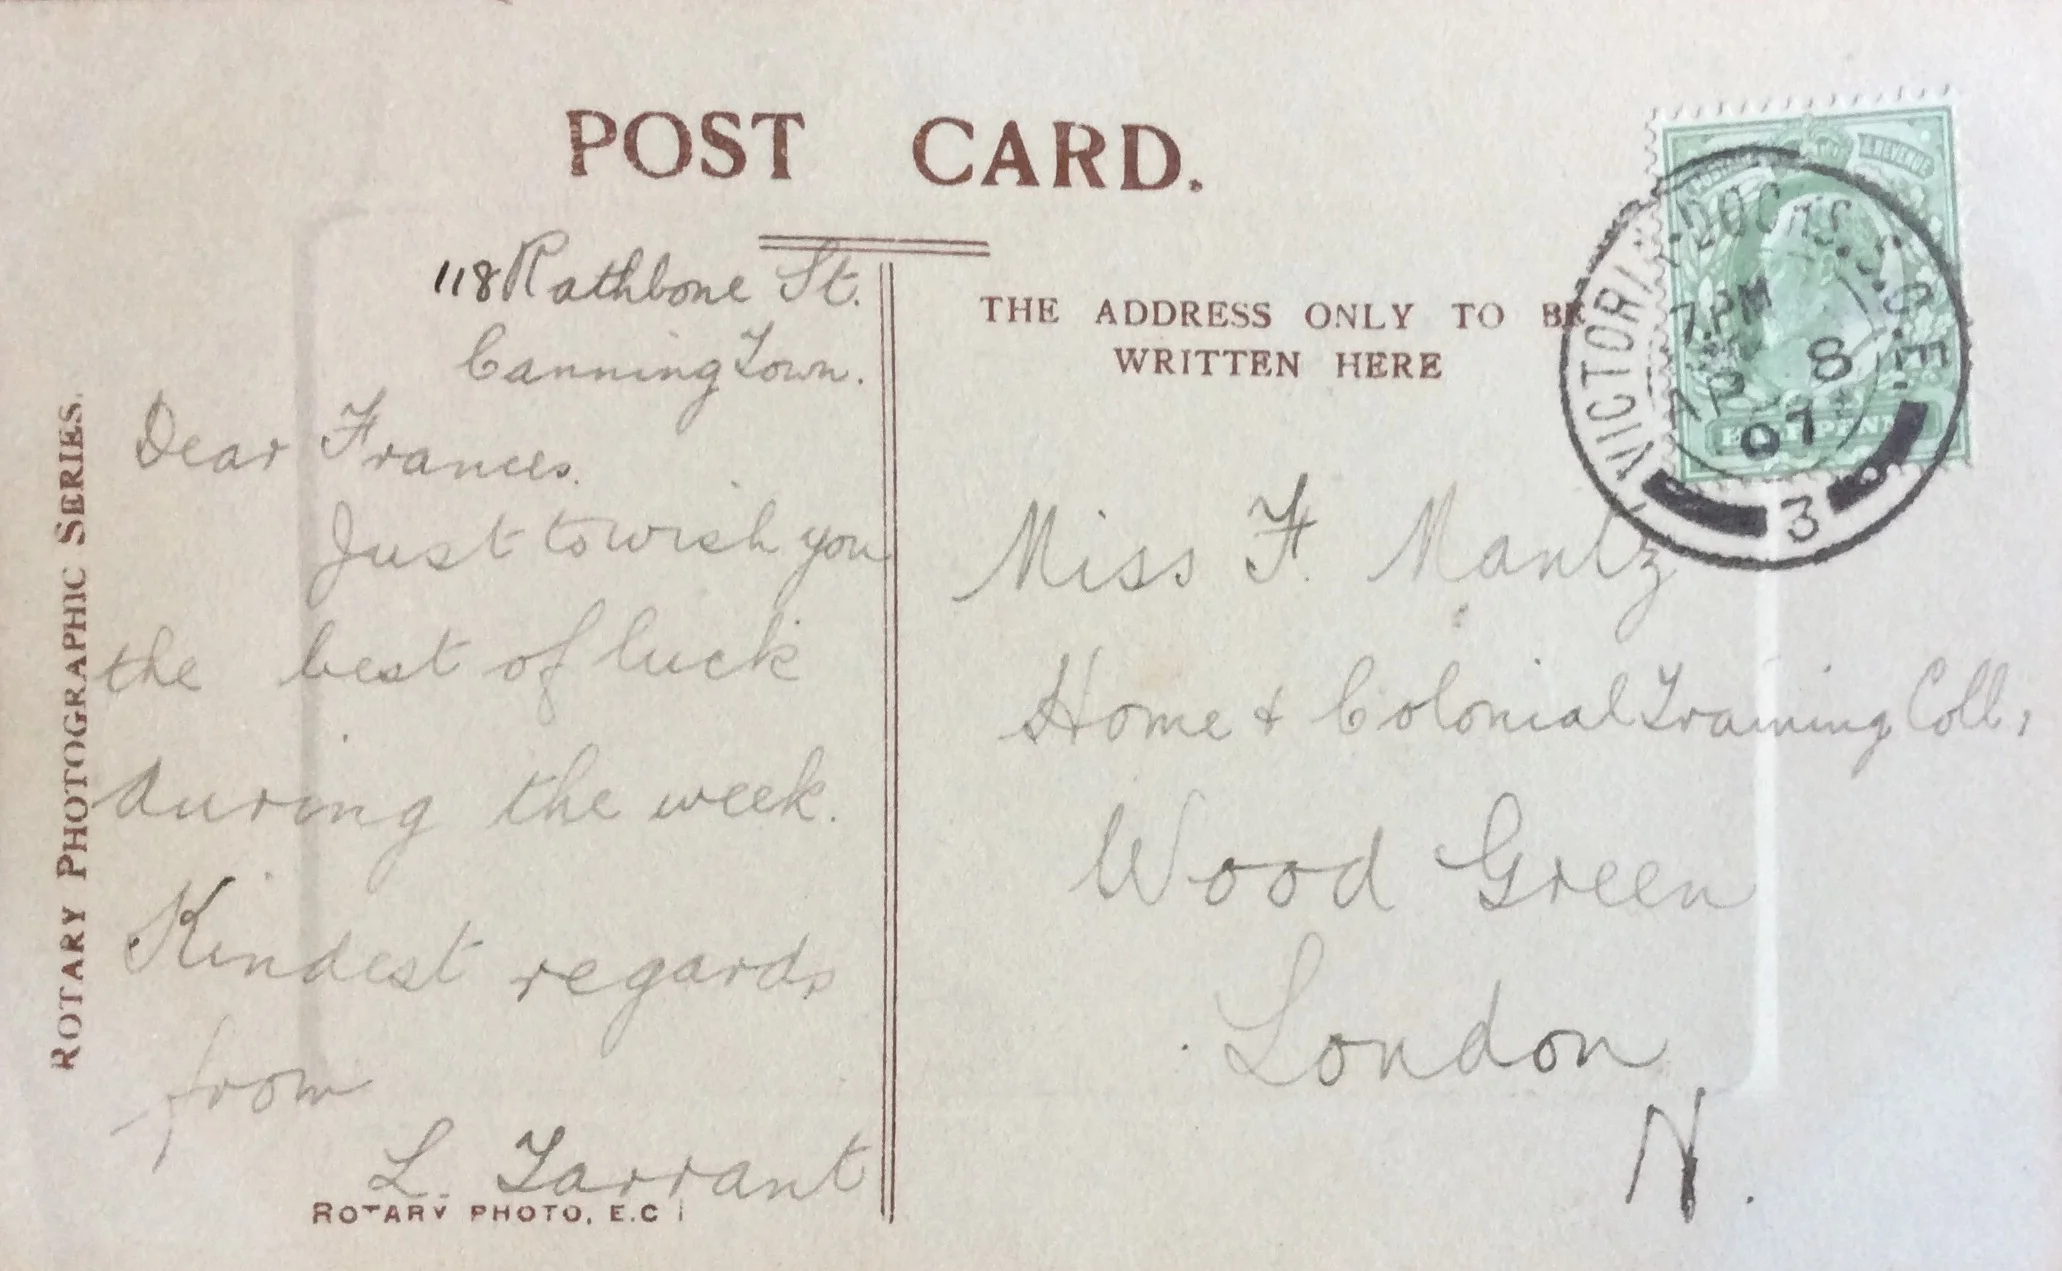 POST CARD.
118 Rathbone St.
Canning Town.
Dear Frances.
Just to wish you
the best of luck
during the week.
Kindest regards
from
L. Tarrant
ROTARY PHOTO, E.C
ROTARY PHOTOGRAPHIC SERIES.
THE ADDRESS ONLY TO BE
WRITTEN HERE
Miss F. Mantz
Home & Colonial Training Coll,
Wood Green
London
N.
POSTAGE & REVENUE
HALFPENNY
VICTORIA DOCKS. S.O. E
7. PM
AP 8
07
3